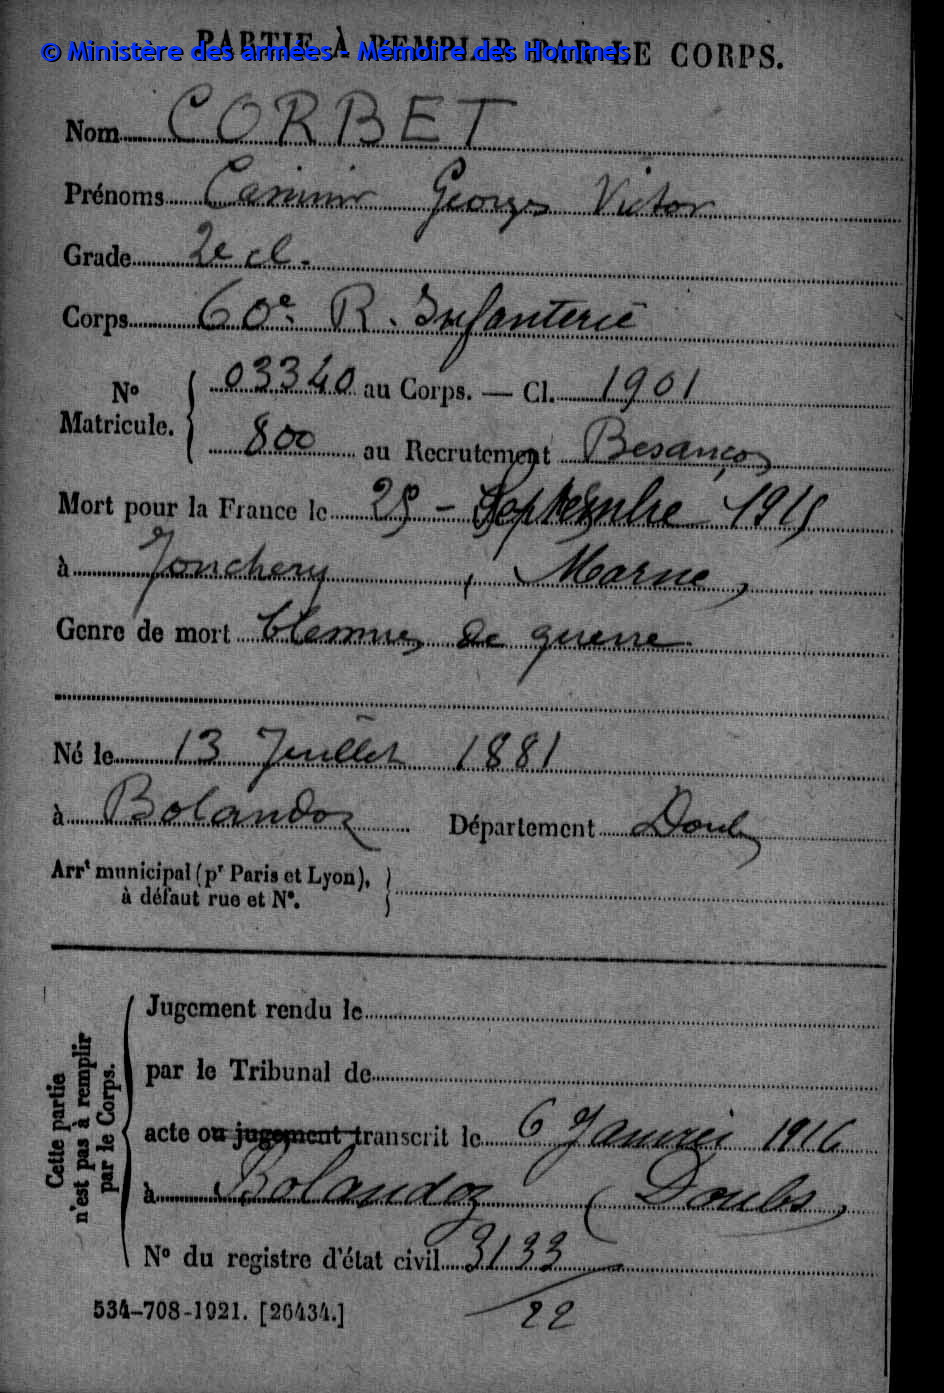 PARTIE À REMPLIR PAR LE CORPS.
© Ministère des armées - Mémoire des Hommes
Nom CORBET
Prénoms Casimir Georges Victor
Grade 2e cl.
Corps 60e R. Infanterie
No Matricule. { 03340 au Corps. — Cl. 1901
800 au Recrutement Besançon
Mort pour la France le 25 - Septembre 1915
à Jonchery, Marne,
Genre de mort blessures de guerre
Né le 13 Juillet 1881
à Bolandoz Département Doubs
Arrt municipal (pr Paris et Lyon), }
à défaut rue et No.
Cette partie
n'est pas à remplir
par le Corps.
Jugement rendu le
par le Tribunal de
acte ou jugement transcrit le 6 Janvier 1916
à Bolandoz (Doubs)
No du registre d'état civil 3133
/22
534-708-1921. [26434.]